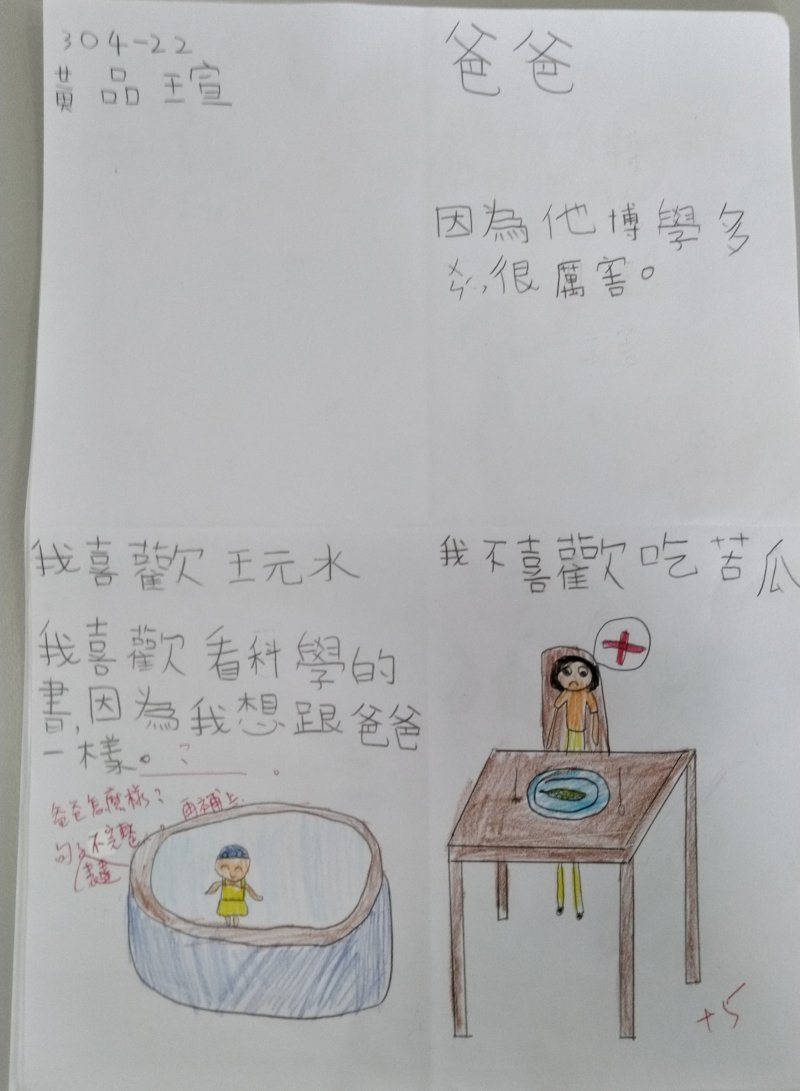 304-22
黃品瑄
爸爸
因為他博學多
ㄨㄣˊ,很厲害。
我喜歡玩水
我喜歡看科學的
書,因為我想跟爸爸
一樣。 ? 。
爸爸怎麼樣? 再補上.
句子不完整
我不喜歡吃苦瓜
+5